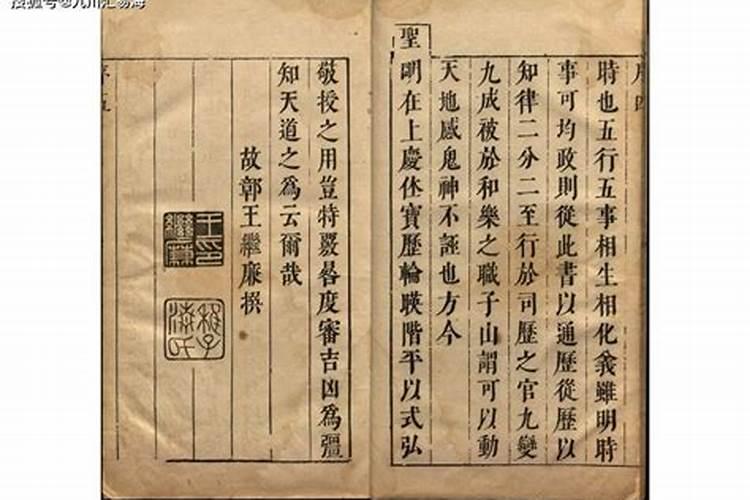 時也五行五事相生相化義雖明時
事可均政則從此書以通歷從歷以
知律二分二至行於司歷之官九變
九成被於和樂之職子山謂可以動
天地感鬼神不誣也方今
聖明在上慶休寶歷輪暎階平以式弘
敬授之用豈特覈晷度審吉凶為疆
知天道之為云爾哉
故鄣王繼廉撰
王印繼廉